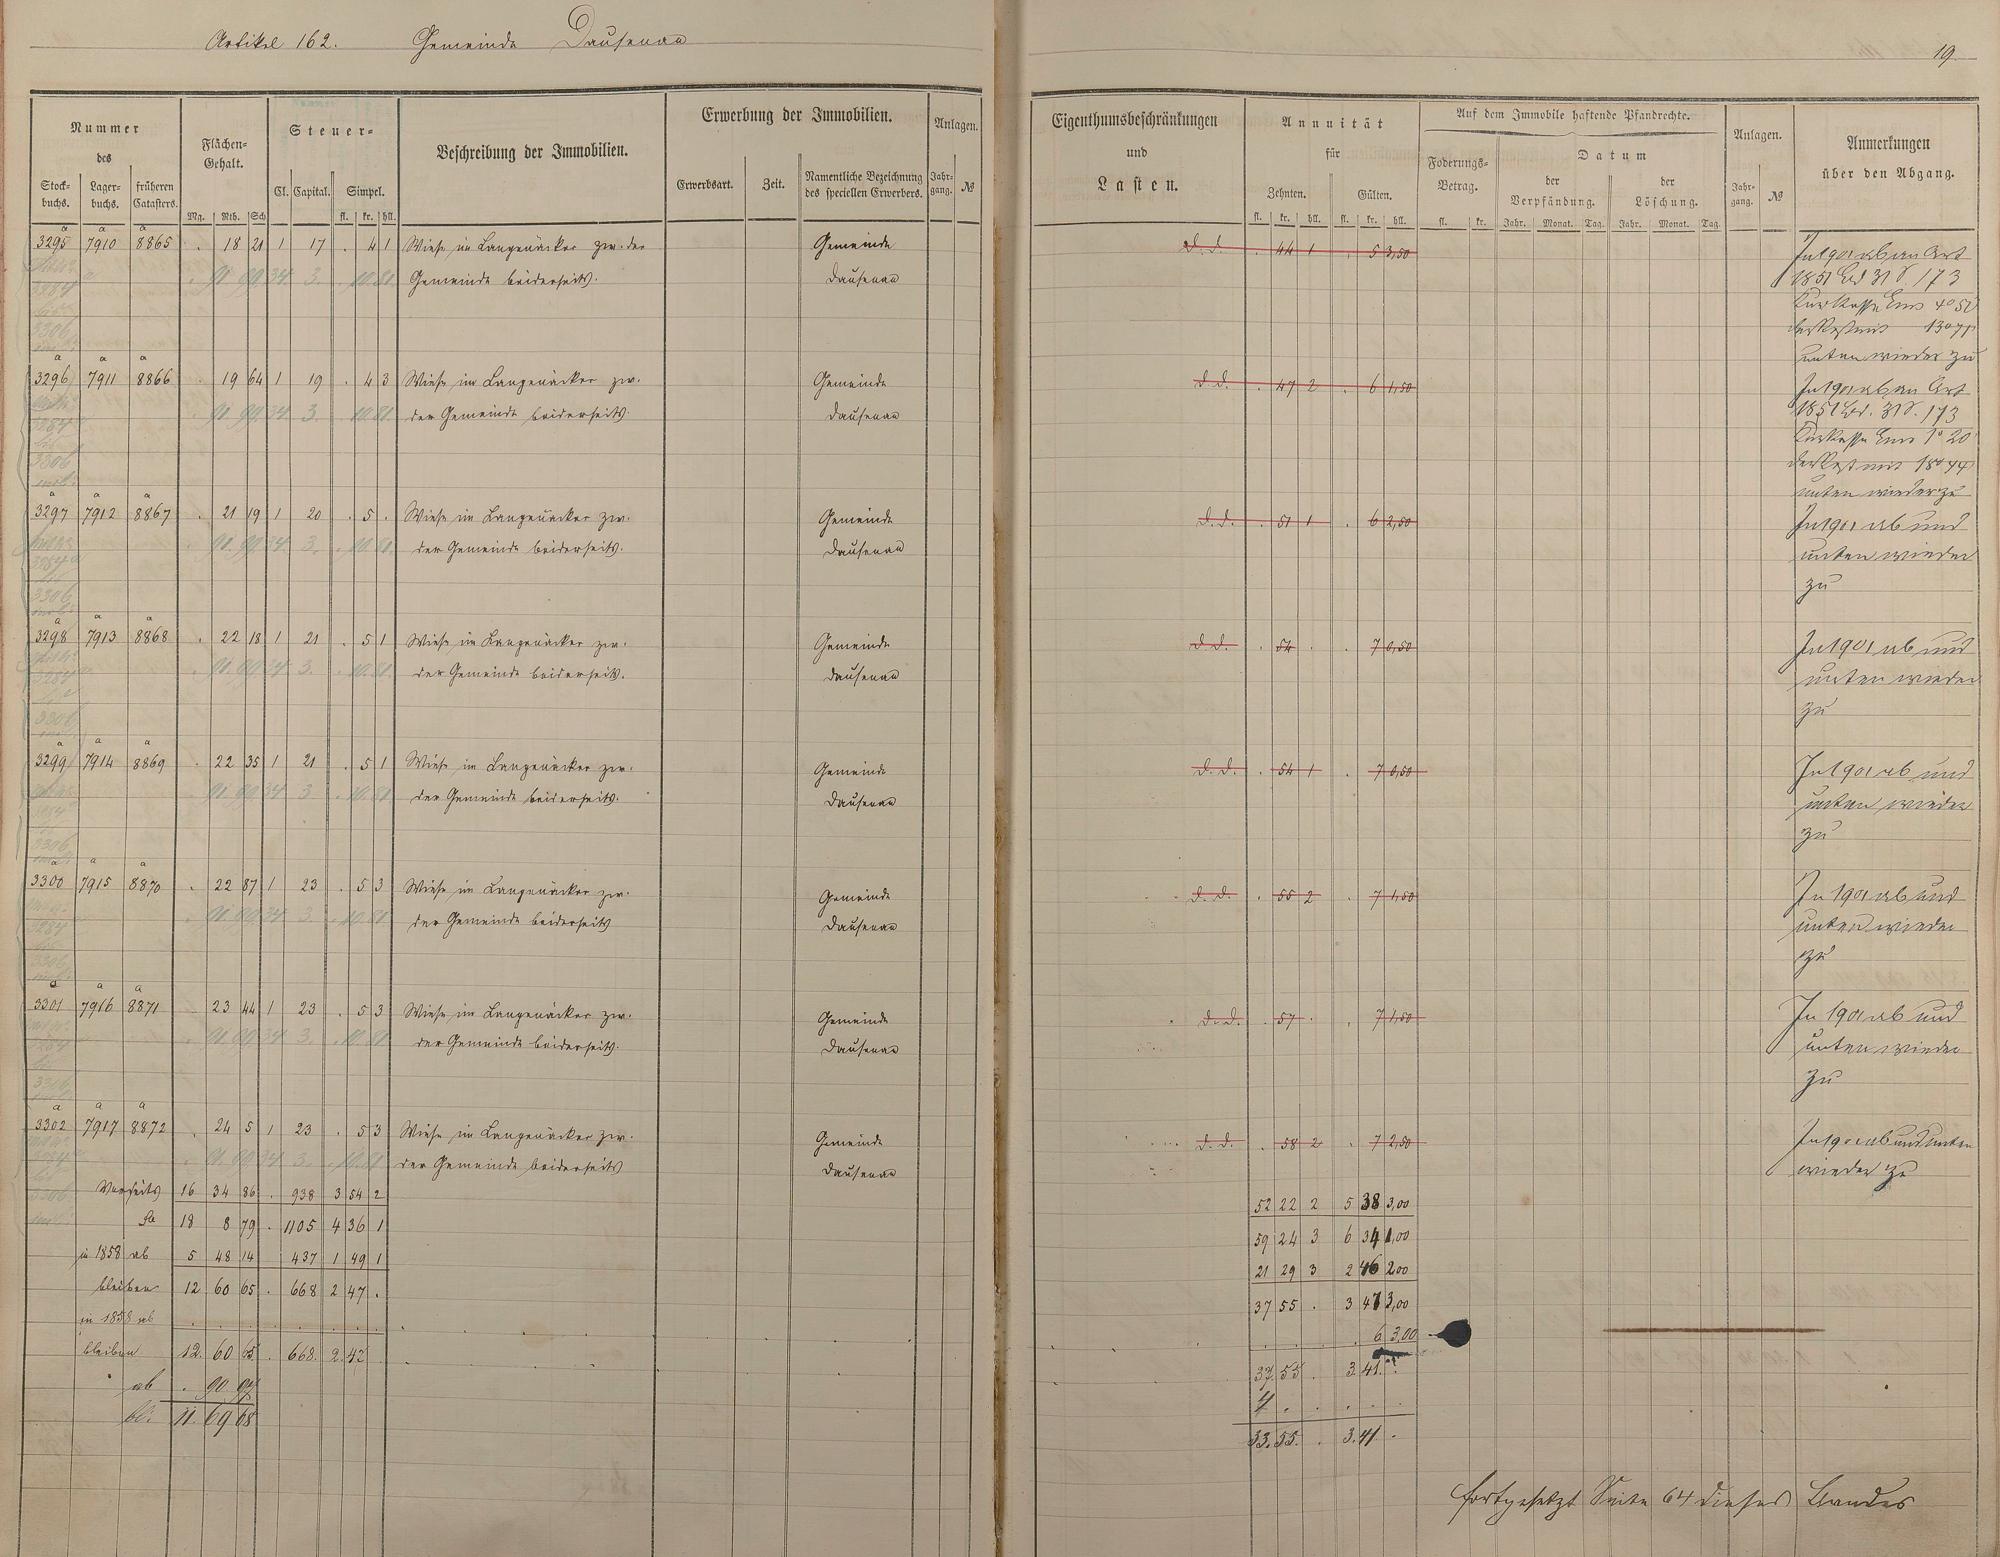 Artikel 162. Gemeinde Dausenau
19
Nummer des
Stockbuchs. Lagerbuchs. früheren Catasters.
Flächen-Gehalt.
Mg. Rth. Sch
Steuer-
Cl. Capital. Simpel.
fl. kr. hll.
Beschreibung der Immobilien.
Erwerbung der Immobilien.
Erwerbsart. Zeit. Namentliche Bezeichnung des speciellen Erwerbers.
Anlagen.
Jahrgang. №
Eigenthumsbeschränkungen und Lasten.
Annuität für
Zehnten. Gülten.
fl. kr. hll. fl. kr. hll.
Auf dem Immobile haftende Pfandrechte.
Foderungs-Betrag.
fl. kr.
Datum
der Verpfändung. der Löschung.
Jahr. Monat. Tag. Jahr. Monat. Tag.
Anlagen.
Jahrgang. №
Anmerkungen über den Abgang.
3295 7910 8865 . 18 21 1 17 . 4 1 Wiese im Langenäcker zw. der Gemeinde d. d. . 44 1 . 5 3,50 In 1901 ab an Art
Gemeinde beiderseits. Dausenau 1851 Bd 31 S. 173
Kurkasse Ems 4° 50
der Rest mit 13° 71
unten wieder zu
3296 7911 8866 . 19 64 1 19 . 4 3 Wiese im Langenäcker zw. Gemeinde d. d. . 47 2 . 6 1,50 In 1901 ab an Art
der Gemeinde beiderseits. Dausenau 1851 Bd. 31 S. 173
Kurkasse Ems 1° 20
der Rest mit 18° 44
unten wieder zu
3297 7912 8867 . 21 19 1 20 . 5 . Wiese im Langenäcker zw. Gemeinde d. d. . 51 1 . 6 2,50 In 1901 ab und
der Gemeinde beiderseits. Dausenau unten wieder
zu
3298 7913 8868 . 22 18 1 21 . 5 1 Wiese im Langenäcker zw. Gemeinde d. d. . 54 . . 7 0,50 In 1901 ab und
der Gemeinde beiderseits. Dausenau unten wieder
zu
3299 7914 8869 . 22 35 1 21 . 5 1 Wiese im Langenäcker zw. Gemeinde d. d. . 54 1 . 7 0,50 In 1901 ab und
der Gemeinde beiderseits. Dausenau unten wieder
zu
3300 7915 8870 . 22 87 1 23 . 5 3 Wiese im Langenäcker zw. Gemeinde d. d. . 55 2 . 7 1,50 In 1901 ab und
der Gemeinde beiderseits Dausenau unten wieder
zu
3301 7916 8871 23 44 1 23 . 5 3 Wiese im Langenäcker zw. Gemeinde d. d. . 57 . . 7 1,50 In 1901 ab und
der Gemeinde beiderseits. Dausenau unten wieder
zu
3302 7917 8872 . 24 5 1 23 . 5 3 Wiese im Langenäcker zw. Gemeinde d. d. . 58 2 . 7 2,50 In 1901 ab und unten
der Gemeinde beiderseits Dausenau wieder zu
Vorseits 16 34 86 . 938 3 54 2 52 22 2 5 38 3,00
Sa 18 8 79 . 1105 4 36 1 59 24 3 6 34 1,00
in 1858 ab 5 48 14 437 1 49 1 21 29 3 2 46 2,00
bleiben 12 60 65 . 668 2 47 . 37 55 . 3 47 3,00
in 1858 ab . . . . . . . . . . . 6 3,00
bleiben 12. 60 65 . 668. 2. 47 . 37. 55 . 3 41.
ab . 90. 97 4 . . . . .
bl. 11. 69 68 33. 55. . 3. 41 .
fortgesetzt Seite 64 dieses Bandes